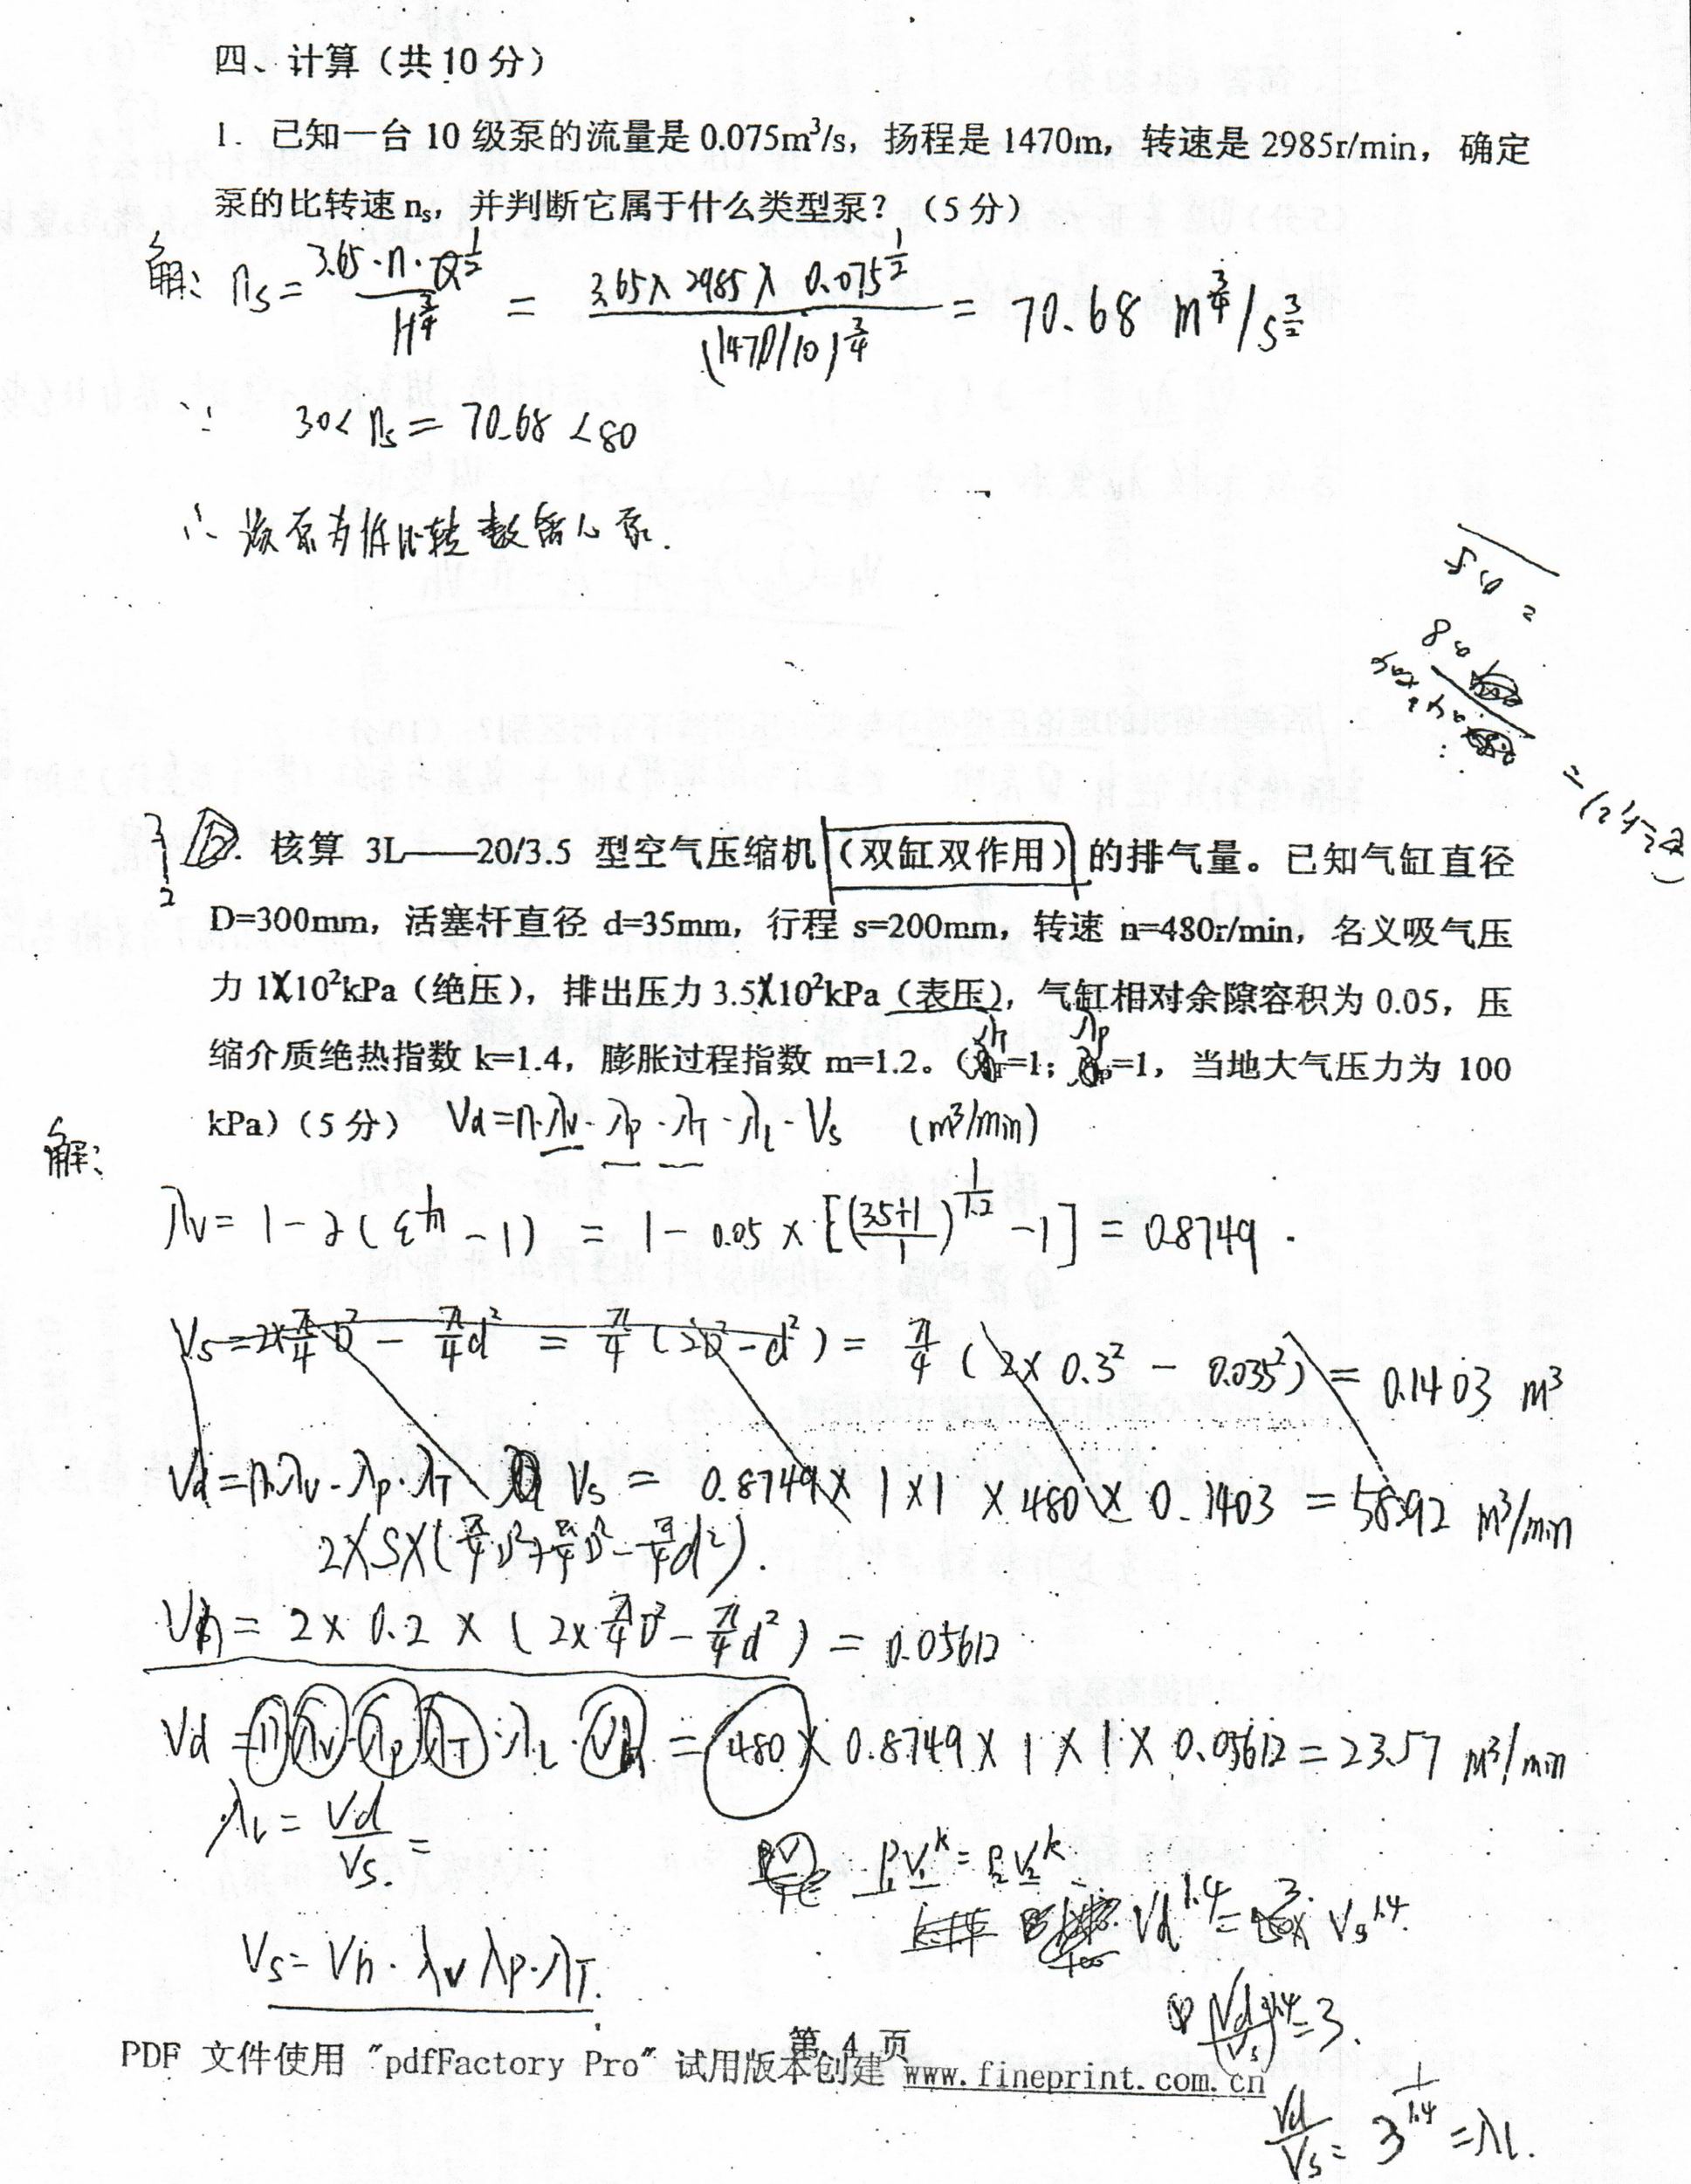 四、计算（共10分）
1. 已知一台 10 级泵的流量是 0.075m³/s，扬程是 1470m，转速是 2985r/min，确定
泵的比转速 nₛ，并判断它属于什么类型泵？（5 分）
解: nₛ = 3.65·n·Q^{1/2} / H^{3/4} = 3.65×2985×0.075^{1/2} / (1470/10)^{3/4} = 70.68 m^{3/4}/s^{3/2}
∵ 30< nₛ = 70.68 <80
∴ 该泵为低比转数离心泵.
2. 核算 3L——20/3.5 型空气压缩机（双缸双作用）的排气量。已知气缸直径
D=300mm，活塞杆直径 d=35mm，行程 s=200mm，转速 n=480r/min，名义吸气压
力 1X10²kPa（绝压），排出压力 3.5X10²kPa（表压），气缸相对余隙容积为 0.05，压
λT λp
缩介质绝热指数 k=1.4，膨胀过程指数 m=1.2。（ =1； =1，当地大气压力为 100
kPa）（5 分） Vd=n·λv·λp·λT·λl·Vs (m³/min)
解:
λv = 1-α(ε^{1/m} -1) = 1- 0.05 × [((3.5+1)/1)^{1/1.2} -1] = 0.8749.
Vs = 2×π/4 D² - π/4 d² = π/4 (2D²-d²) = π/4 (2×0.3² - 0.035²) = 0.1403 m³
Vd = n·λv·λp·λT Vs = 0.8749×1×1×480×0.1403 = 58.92 m³/min
2×S×(π/4 D²+π/4 D²-π/4 d²).
Vh = 2×0.2×(2×π/4 D²-π/4 d²) = 0.05612
Vd = n λv·λp·λT·λl·Vh = 480×0.8749×1×1×0.05612 = 23.57 m³/min
λl = Vd/Vs =
P₁V₁^k = P₂V₂^k
Vd^{1.4} = 3 × Vs^{1.4}
Vs = Vh·λv λp·λT.
(Vd/Vs)^{1.4} = 3.
第 4 页
PDF 文件使用 "pdfFactory Pro" 试用版本创建 www.fineprint.com.cn
Vd/Vs = 3^{1/1.4} = λl.